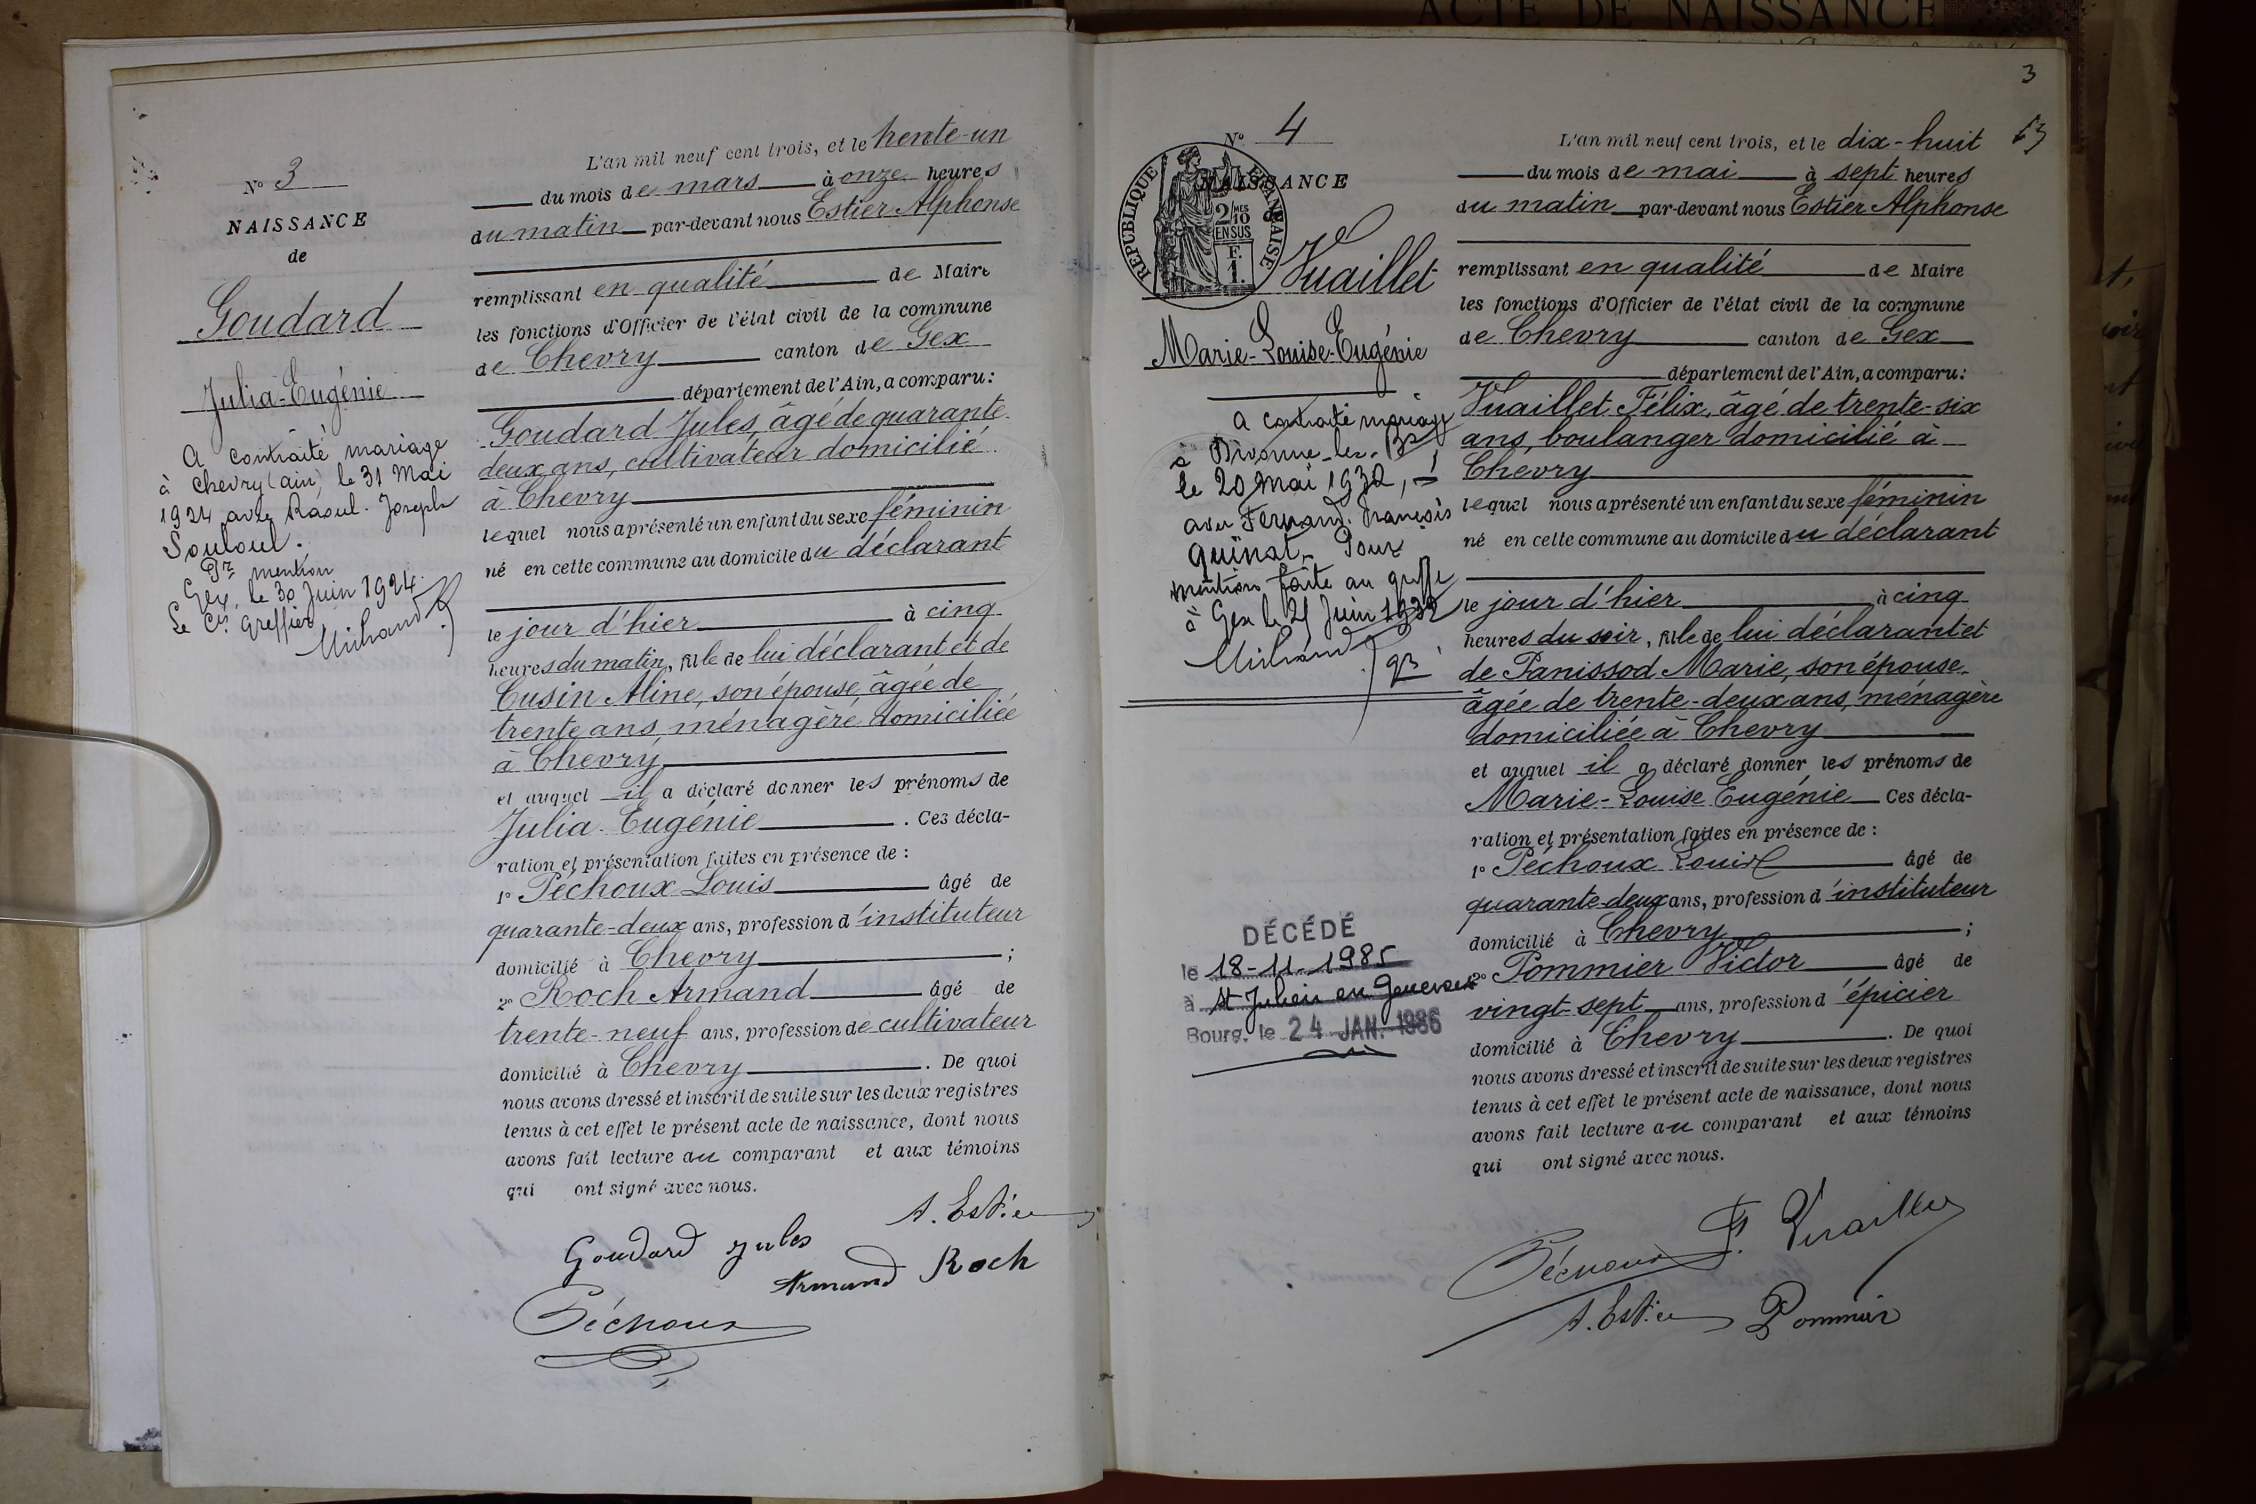 ACTE DE NAISSANCE
Nº 3
NAISSANCE
de
Goudard
Julia-Eugénie
A contraité mariage
à Chevry (ain) le 31 Mai
1924 avec Raoul-Joseph
Souloul.
Pr mention
Gex, le 30 Juin 1924.
Le Cis Greffier
L'an mil neuf cent trois, et le trente-un
du mois de mars à onze heures
du matin par-devant nous Estier Alphonse
remplissant en qualité de Maire
les fonctions d'Officier de l'état civil de la commune
de Chevry canton de Gex
département de l'Ain, a comparu:
Goudard Jules, âgé de quarante
deux ans, cultivateur domicilié
à Chevry
lequel nous a présenté un enfant du sexe féminin
né en cette commune au domicile du déclarant
le jour d'hier à cinq
heures du matin, fille de lui déclarant et de
Cusin Aline, son épouse, âgée de
trente ans, ménagère domiciliée
à Chevry
et auquel il a déclaré donner les prénoms de
Julia-Eugénie. Ces décla-
ration et présentation faites en présence de :
1º Péchoux Louis âgé de
quarante-deux ans, profession d'instituteur
domicilié à Chevry ;
2º Roch Armand âgé de
trente-neuf ans, profession de cultivateur
domicilié à Chevry. De quoi
nous avons dressé et inscrit de suite sur les deux registres
tenus à cet effet le présent acte de naissance, dont nous
avons fait lecture au comparant et aux témoins
qui ont signé avec nous.
A. Estier
Goudard Jules
Armand Roch
Péchoux
3
13
Nº 4
NAISSANCE
de
REPUBLIQUE FRANÇAISE
2/10 MES
EN SUS
F.
1.
Vuaillet
Marie-Louise-Eugénie
A contraité mariage
à Divonne-les-Bs
le 20 Mai 1932,
avec Fernand François
Quinat. Pour
mention faite au greffe
à Gex le 21 Juin 1932
DÉCÉDÉ
le 18-11-1985
à St Julien en Genevois
Bourg, le 24 JAN. 1986
L'an mil neuf cent trois, et le dix-huit
du mois de mai à sept heures
du matin par-devant nous Estier Alphonse
remplissant en qualité de Maire
les fonctions d'Officier de l'état civil de la commune
de Chevry canton de Gex
département de l'Ain, a comparu:
Vuaillet Félix, âgé de trente-six
ans, boulanger domicilié à
Chevry
lequel nous a présenté un enfant du sexe féminin
né en cette commune au domicile du déclarant
le jour d'hier à cinq
heures du soir, fille de lui déclarant et
de Panissod Marie, son épouse
âgée de trente-deux ans, ménagère
domiciliée à Chevry
et auquel il a déclaré donner les prénoms de
Marie-Louise Eugénie Ces décla-
ration et présentation faites en présence de :
1º Péchoux Louis âgé de
quarante-deux ans, profession d'instituteur
domicilié à Chevry ;
2º Pommier Victor âgé de
vingt-sept ans, profession d'épicier
domicilié à Chevry. De quoi
nous avons dressé et inscrit de suite sur les deux registres
tenus à cet effet le présent acte de naissance, dont nous
avons fait lecture au comparant et aux témoins
qui ont signé avec nous.
Péchoux F. Vuaillet
A. Estier Pommier